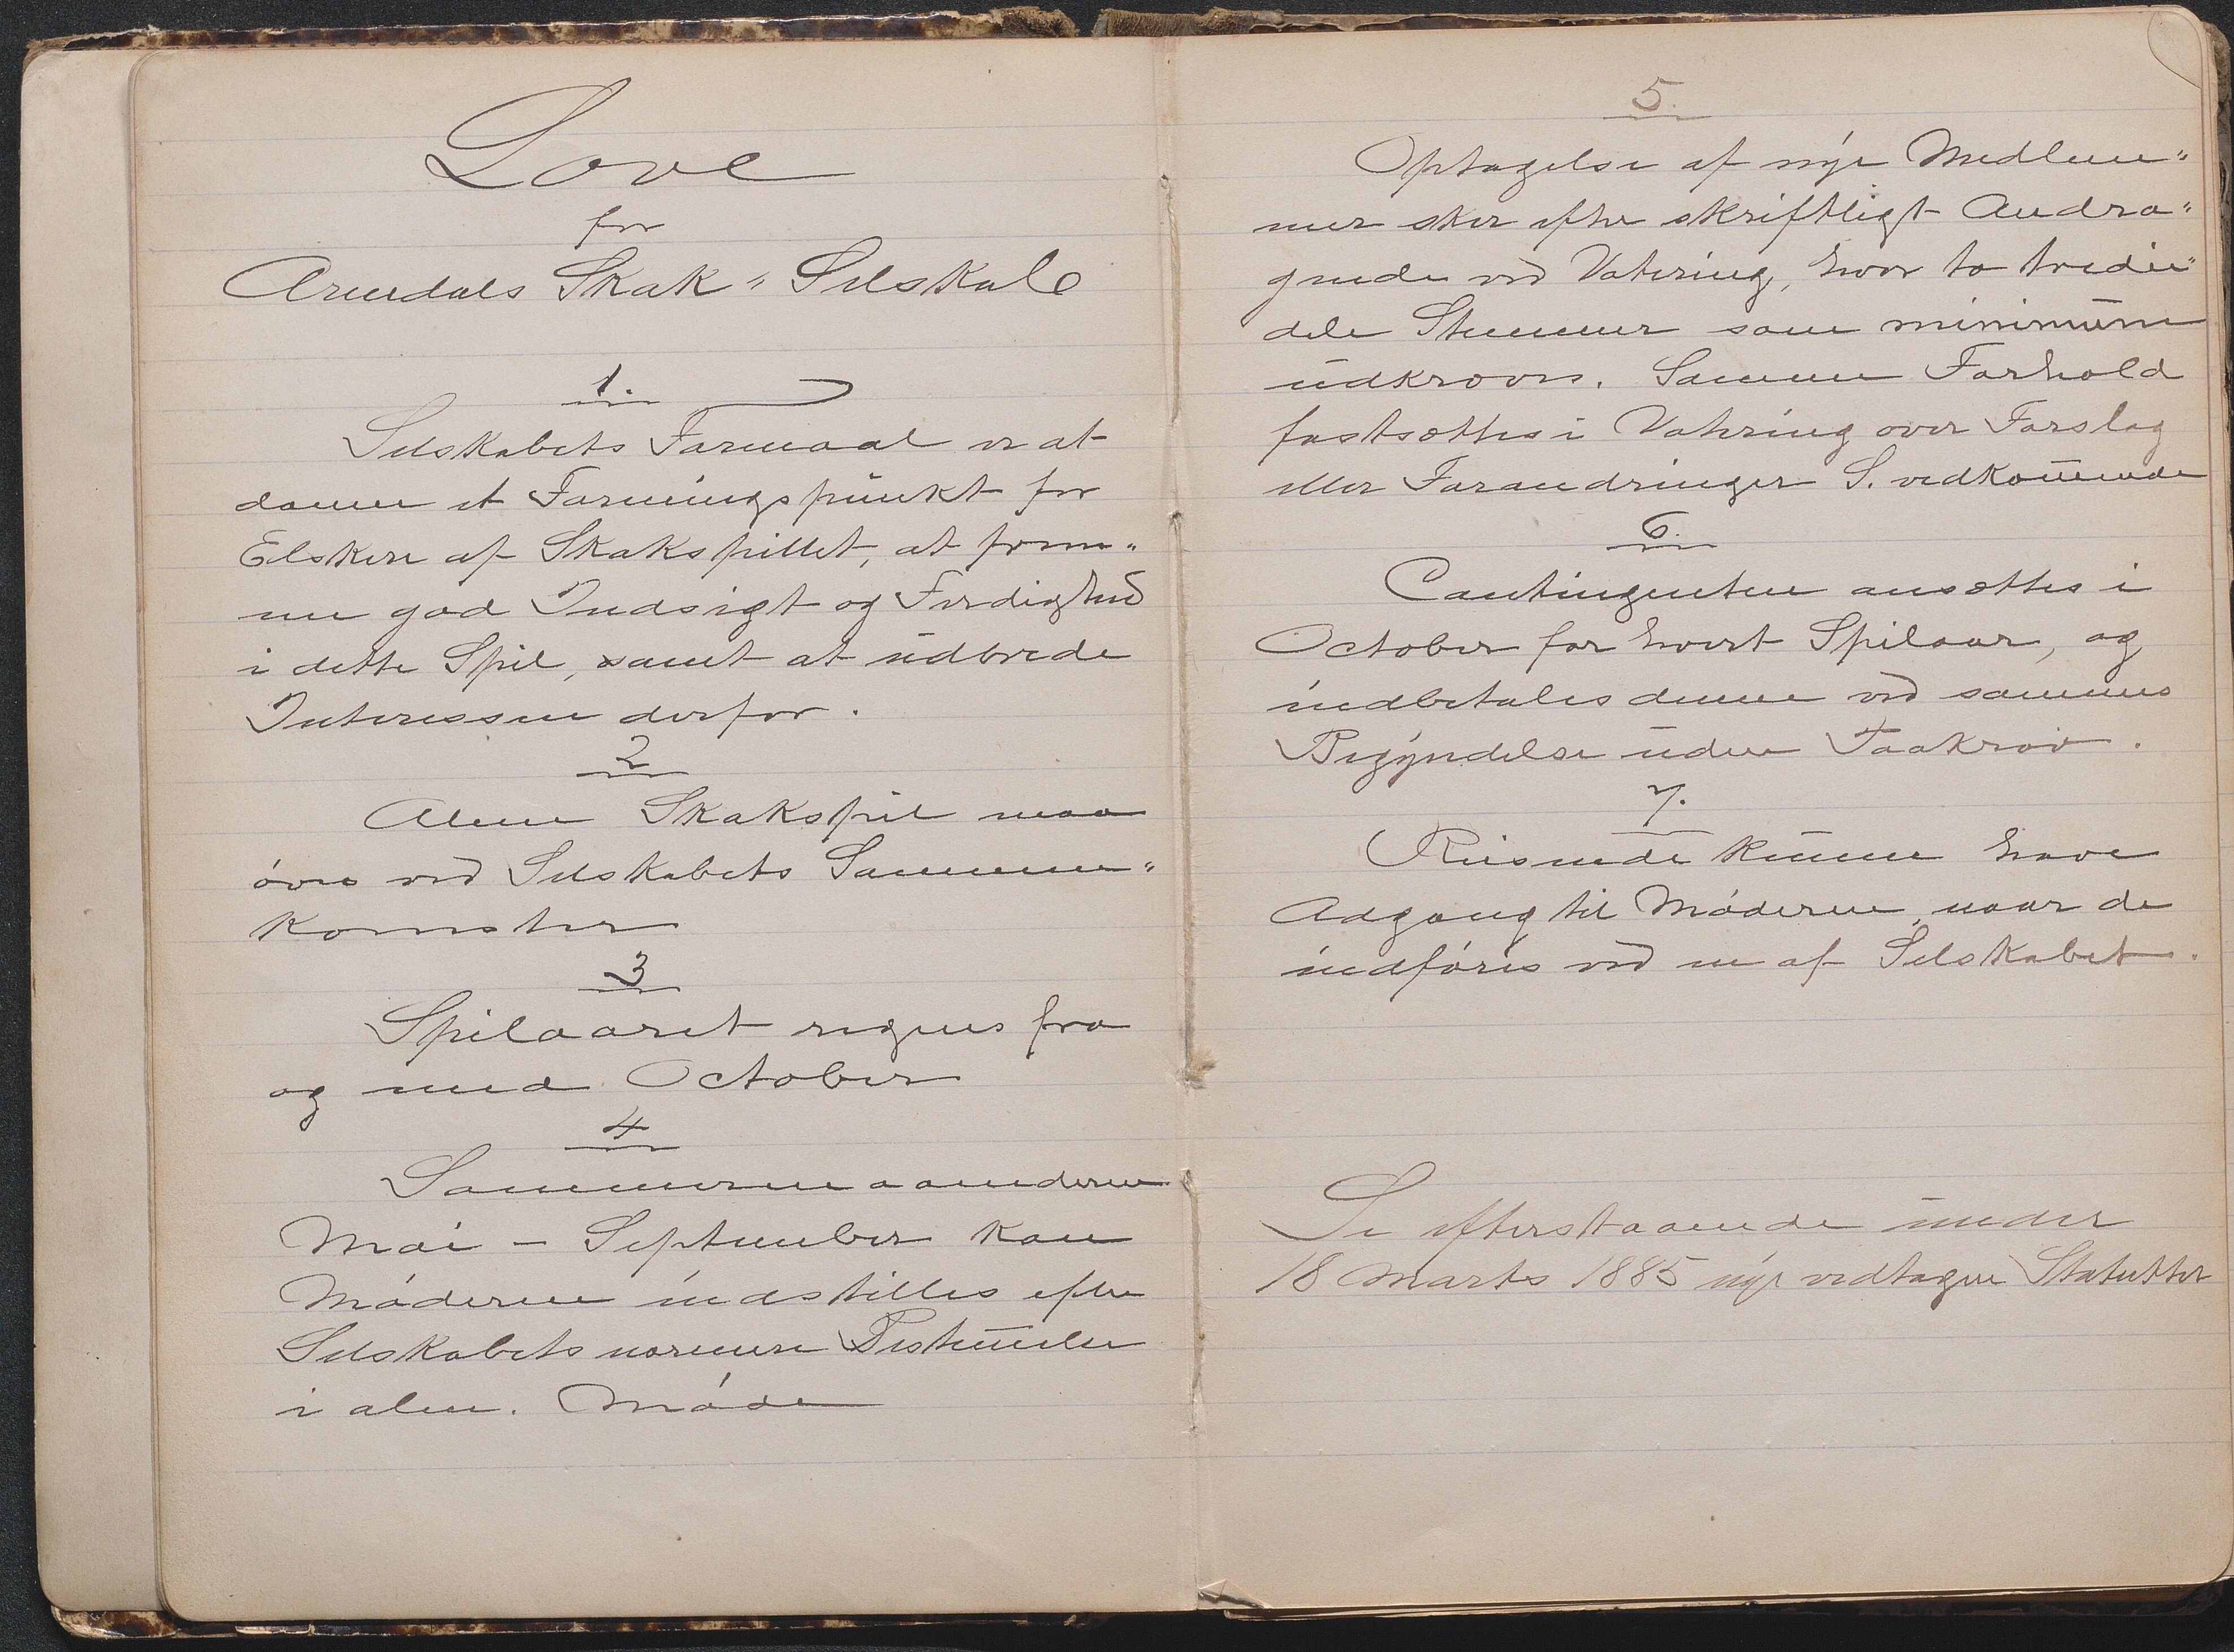 Love
for
Arendals Skak" Selskab
1.
Selskabets Formaal er at
danne et Foreningspunkt for
Elskere af Skakspillet, at frem"
me god Indsigt og Færdighed
i dette Spil, samt at udbrede
Interessen derfor.
2
Alene Skakspil maa
øves ved Selskabets Sammen"
komster
3
Spilaaret regnes fra
og med October
4
Sommermaanederne
Mai - September kan
Møderne indstilles efter
Selskabets nærmere Bestemmelse
i alm. Møde
5.
Optagelse af nye Medlem"
mer sker efter skriftligt Andra"
gende ved Votering, hvor to tredie"
dele Stemmer som minimum
udkræves. Samme Forhold
fastsættes i Votering over Forslag
eller Forandringer S. vedkommende
6.
Contingenten ansættes i
October for hvert Spilaar, og
indbetales denne ved sammes
Begyndelse uden Paakrav.
7.
Reisende kunne have
Adgang til Møderne, naar de
indføres ved en af Selskabet.
Se efterstaaende under
18 Marts 1885 nye vedtagne Statutter